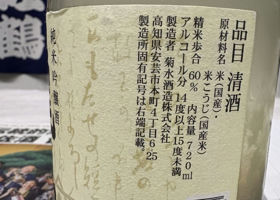 品目 清酒
原材料名 米(国産)・
米こうじ(国産米)
精米歩合 60% 内容量 720ml
アルコール分 14度以上15度未満
製造者 菊水酒造株式会社
高知県安芸市本町4丁目6-25
製造所固有記号は右端記載。
純米吟醸酒
鶴